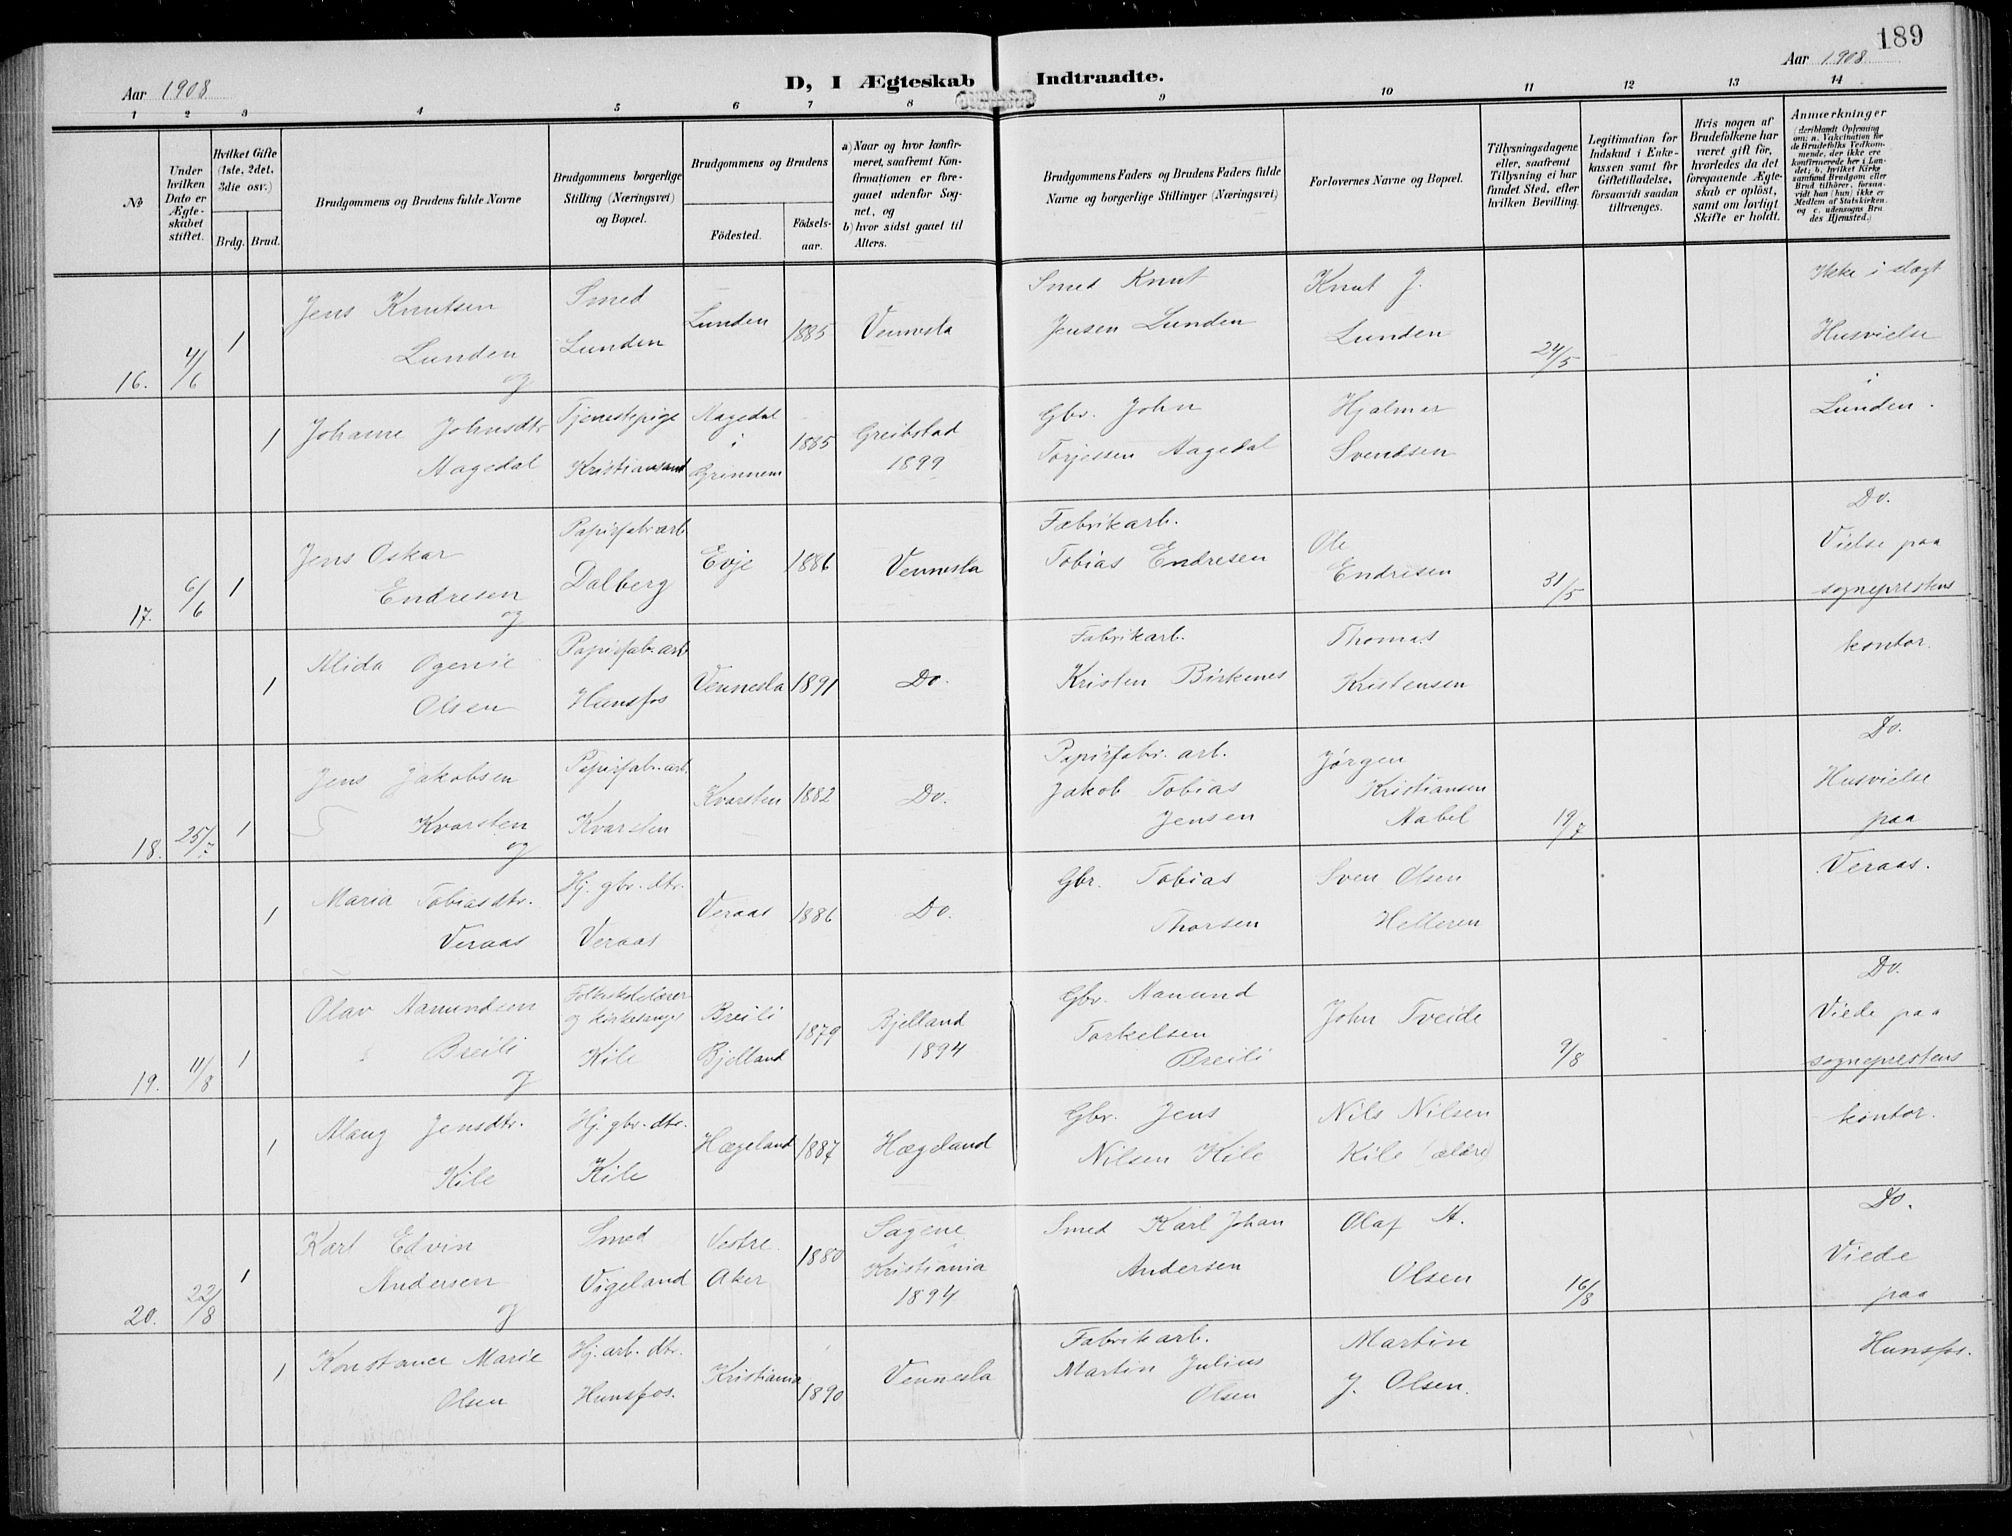 189
Aar 1908
D, I Ægteskab Indtraadte.
Aar 1908
1 2 3 4 5 6 7 8 9 10 11 12 13 14
№
Under hvilken Dato er Ægteskabet stiftet.
Hvilket Gifte (1ste, 2det, 3die osv.)
Brdg. Brud.
Brudgommens og Brudens fulde Navne
Brudgommens borgerlige Stilling (Næringsvei) og Bopæl.
Brudgommens og Brudens
Födested.
Födselsaar.
a) Naar og hvor konfirmeret, saafremt Konfirmationen er foregaaet udenför Sognet, og
b) hvor sidst gaaet til Alters.
Brudgommens Faders og Brudens Faders fulde Navne og borgerlige Stillinger (Næringsvei)
Forlovernes Navne og Bopæl.
Tillysningsdagene eller, saafremt Tillysning ei har fundet Sted, efter hvilken Bevilling.
Legitimation for Indskud i Enkekassen samt for Giftetilladelse, forsaavidt saadan tiltrænges.
Hvis nogen af Brudefolkene har været gift för, hvorledes da det foregaaende Ægteskab er oplöst, samt om lovligt Skifte er holdt.
Anmærkninger
(deriblandt Oplysning om: a. Vakcination for de Brudefolks Vedkommende, der ikke ere konfirmerede her i Landet; b. hvilket Kirkesamfund Brudgom eller Brud tilhörer, forsaavidt han (hun) ikke er Medlem af Statskirken, og c. udensogns Brudes Hjemsted.)
16. 4/6 1
Jens Knutsen
Lunden
og
Smed
Lunden
Lunden 1885 Vennesla
Smed Knut
Jensen Lunden
Knut J.
Lunden
24/5
Ikke i slegt
Husvielse
i
Lunden.
1
Johanne Johnsdtr
Aagedal
Tjenestepige
Kristiansand
Aagedal
i
Grinnem
1885
Greibstad
1899
Gbr. John
Torjessen Aagedal
Hjalmar
Svendsen
17. 6/6 1
Jens Oskar
Endresen
og
Papirfabr.arb
Dalberg
Evje 1886 Vennesla
Fabrikarb.
Tobias Endresen
Ole
Endresen
31/5
Do.
Vielse paa
sogneprestens
kontor.
1
Alida Ogenie
Olsen
Papirfab.arb
Hunsfos
Vennesla 1891 Do.
Fabrikarb.
Kristen Birkenes
Thomas
Kristensen
18. 25/7 1
Jens Jakobsen
Kvarsten
og
Papirfab.arb.
Kvarsten
Kvarsten 1882 Do.
Papirfabr.arb.
Jakob Tobias
Jensen
Jørgen
Kristiansen
Nabel
19/7
Do.
Husvielse
paa
Veraas.
1
Maria Tobiasdtr.
Veraas
Hj. gbr. dtr.
Veraas
Veraas 1886 Do.
Gbr. Tobias
Thorsen
Sven Olsen
Helleren
19. 11/8 1
Olav Aamundsen
Breili
og
Folkeskolelærer
og kirkesanger
Kile
Breili
Bjelland
1879
Bjelland
1894
Gbr. Aamund
Torkelsen
Breili
John Tveide
9/8
Do.
Viede paa
sogneprestens
kontor.
1
Alaug Jensdtr.
Kile
Hj. gbr. dtr.
Kile
Hægeland 1887 Hægeland
Gbr. Jens
Nilsen Kile
Nils Nilsen
Kile (ældre)
20. 22/8 1
Karl Edvin
Andersen
og
Smed
Vigeland
Vestre
Aker
1880
Sagene
Kristiania
1894
Smed Karl Johan
Andersen
Olaf A.
Olsen
16/8
Do.
Viede
paa
Hunsfos.
1
Konstance Marie
Olsen
Hj. arb. dtr.
Hunsfos.
Kristiania 1890 Vennesla
Fabrikarb.
Martin Julius
Olsen
Martin
J. Olsen.